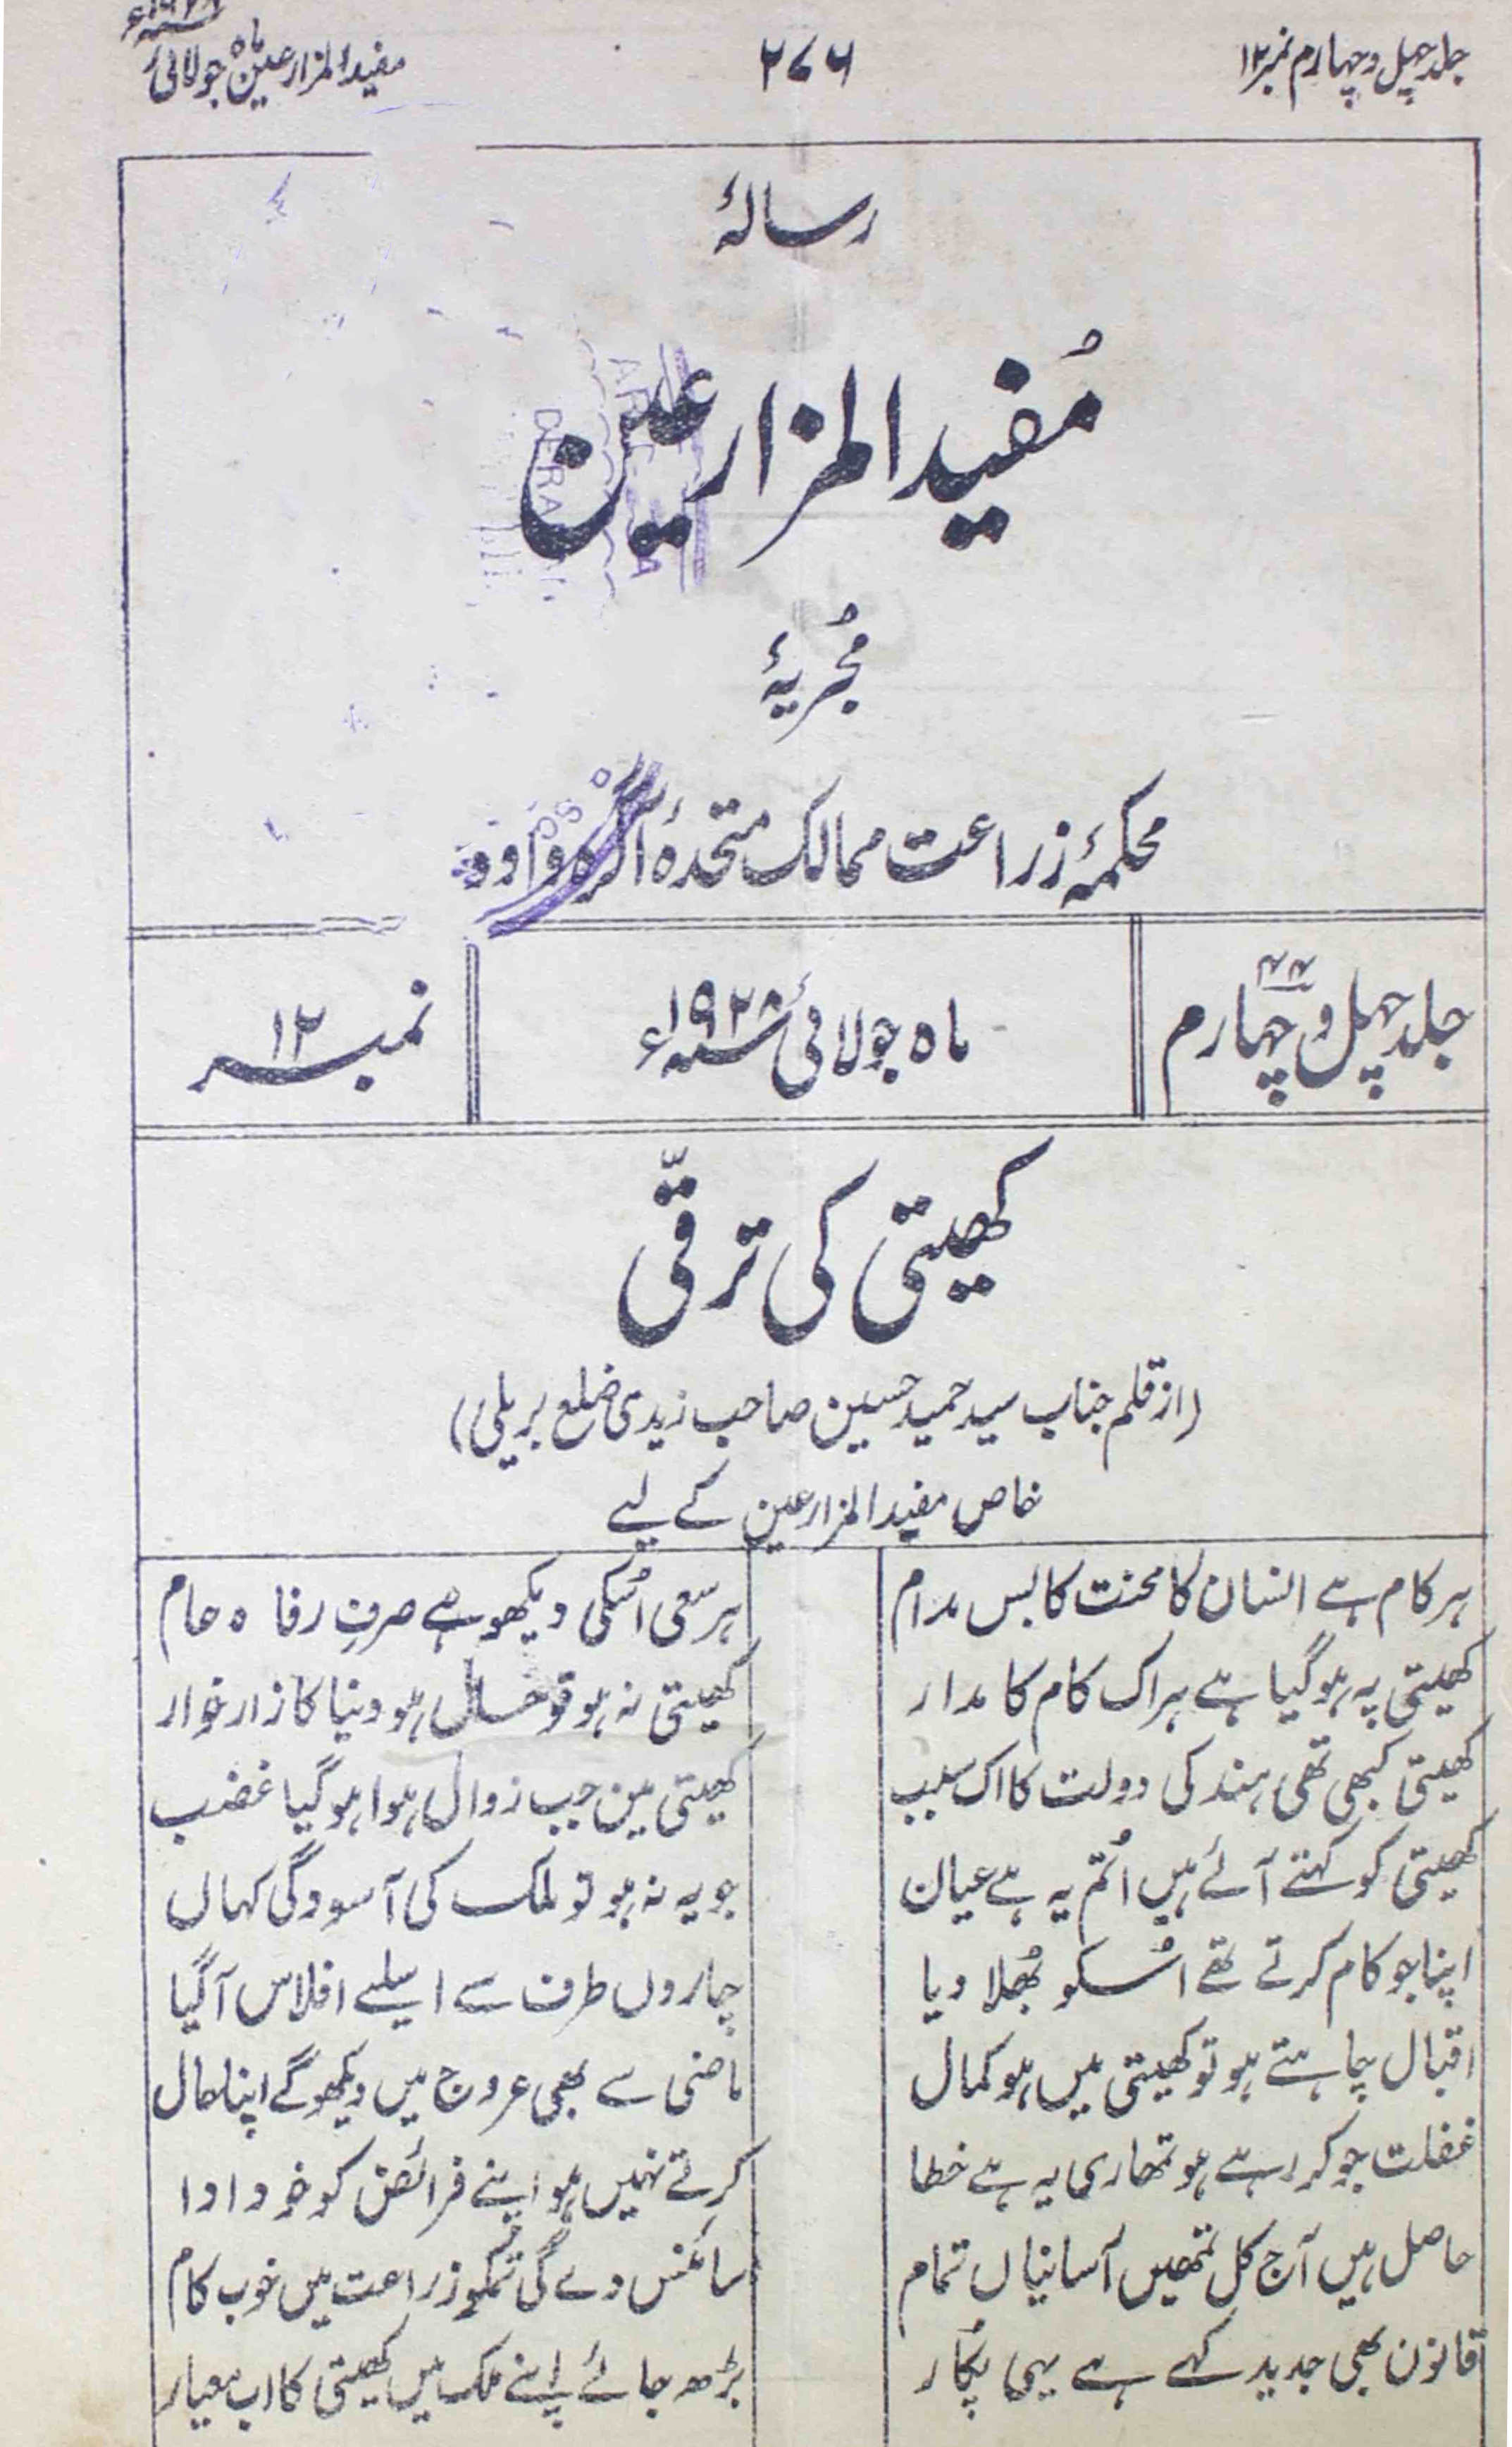 جلد چہل و چہارم نمبر ۱۲
۲۷۶
مفید المزارعین ماہ جولائی ۱۹۲۸ء
رسالۂ
مُفید المزارعین
مُجریۂ
محکمۂ زراعت ممالک متحدۂ آگرہ و اودھ
جلد چہل و چہارم ۴۴
ماہ جولائی ۱۹۲۸ء
نمبر ۱۲
کھیتی کی ترقّی
(از قلم جناب سید حمید حسین صاحب زیدی ضلع بریلی)
خاص مفید المزارعین کے لیے
ہر کام ہے انسان کا محنت کا بس مدام
ہر سعی اُسکی دیکھو ہے صرفِ رفاہ عام
کھیتی پہ ہو گیا ہے ہر اک کام کا مدار
کھیتی نہ ہو تو حال ہو دنیا کا زار خوار
کھیتی کبھی تھی ہند کی دولت کا اک سبب
کھیتی مین جب زوال ہوا ہو گیا غضب
کھیتی کو کہتے آئے ہیں اُتم یہ ہے عیان
جو یہ نہ ہو تو ملک کی آسودگی کہاں
اپنا جو کام کرتے تھے اُسکو بُھلا دیا
چاروں طرف سے اسلیے افلاس آگیا
اقبال چاہتے ہو تو کھیتی میں ہو کمال
ماضی سے بھی عروج میں دیکھو گے اپنا حال
غفلت جو کر رہے ہو تمھاری یہ ہے خطا
کرتے نہیں ہو اپنے فرائض کو خود ادا
حاصل ہیں آج کل تمھیں آسانیاں تمام
سائنس دے گی تمکو زراعت میں خوب کام
قانون بھی جدید کہے ہے یہی پکار
بڑھ جائے اپنے ملک میں کھیتی کا اب معیار